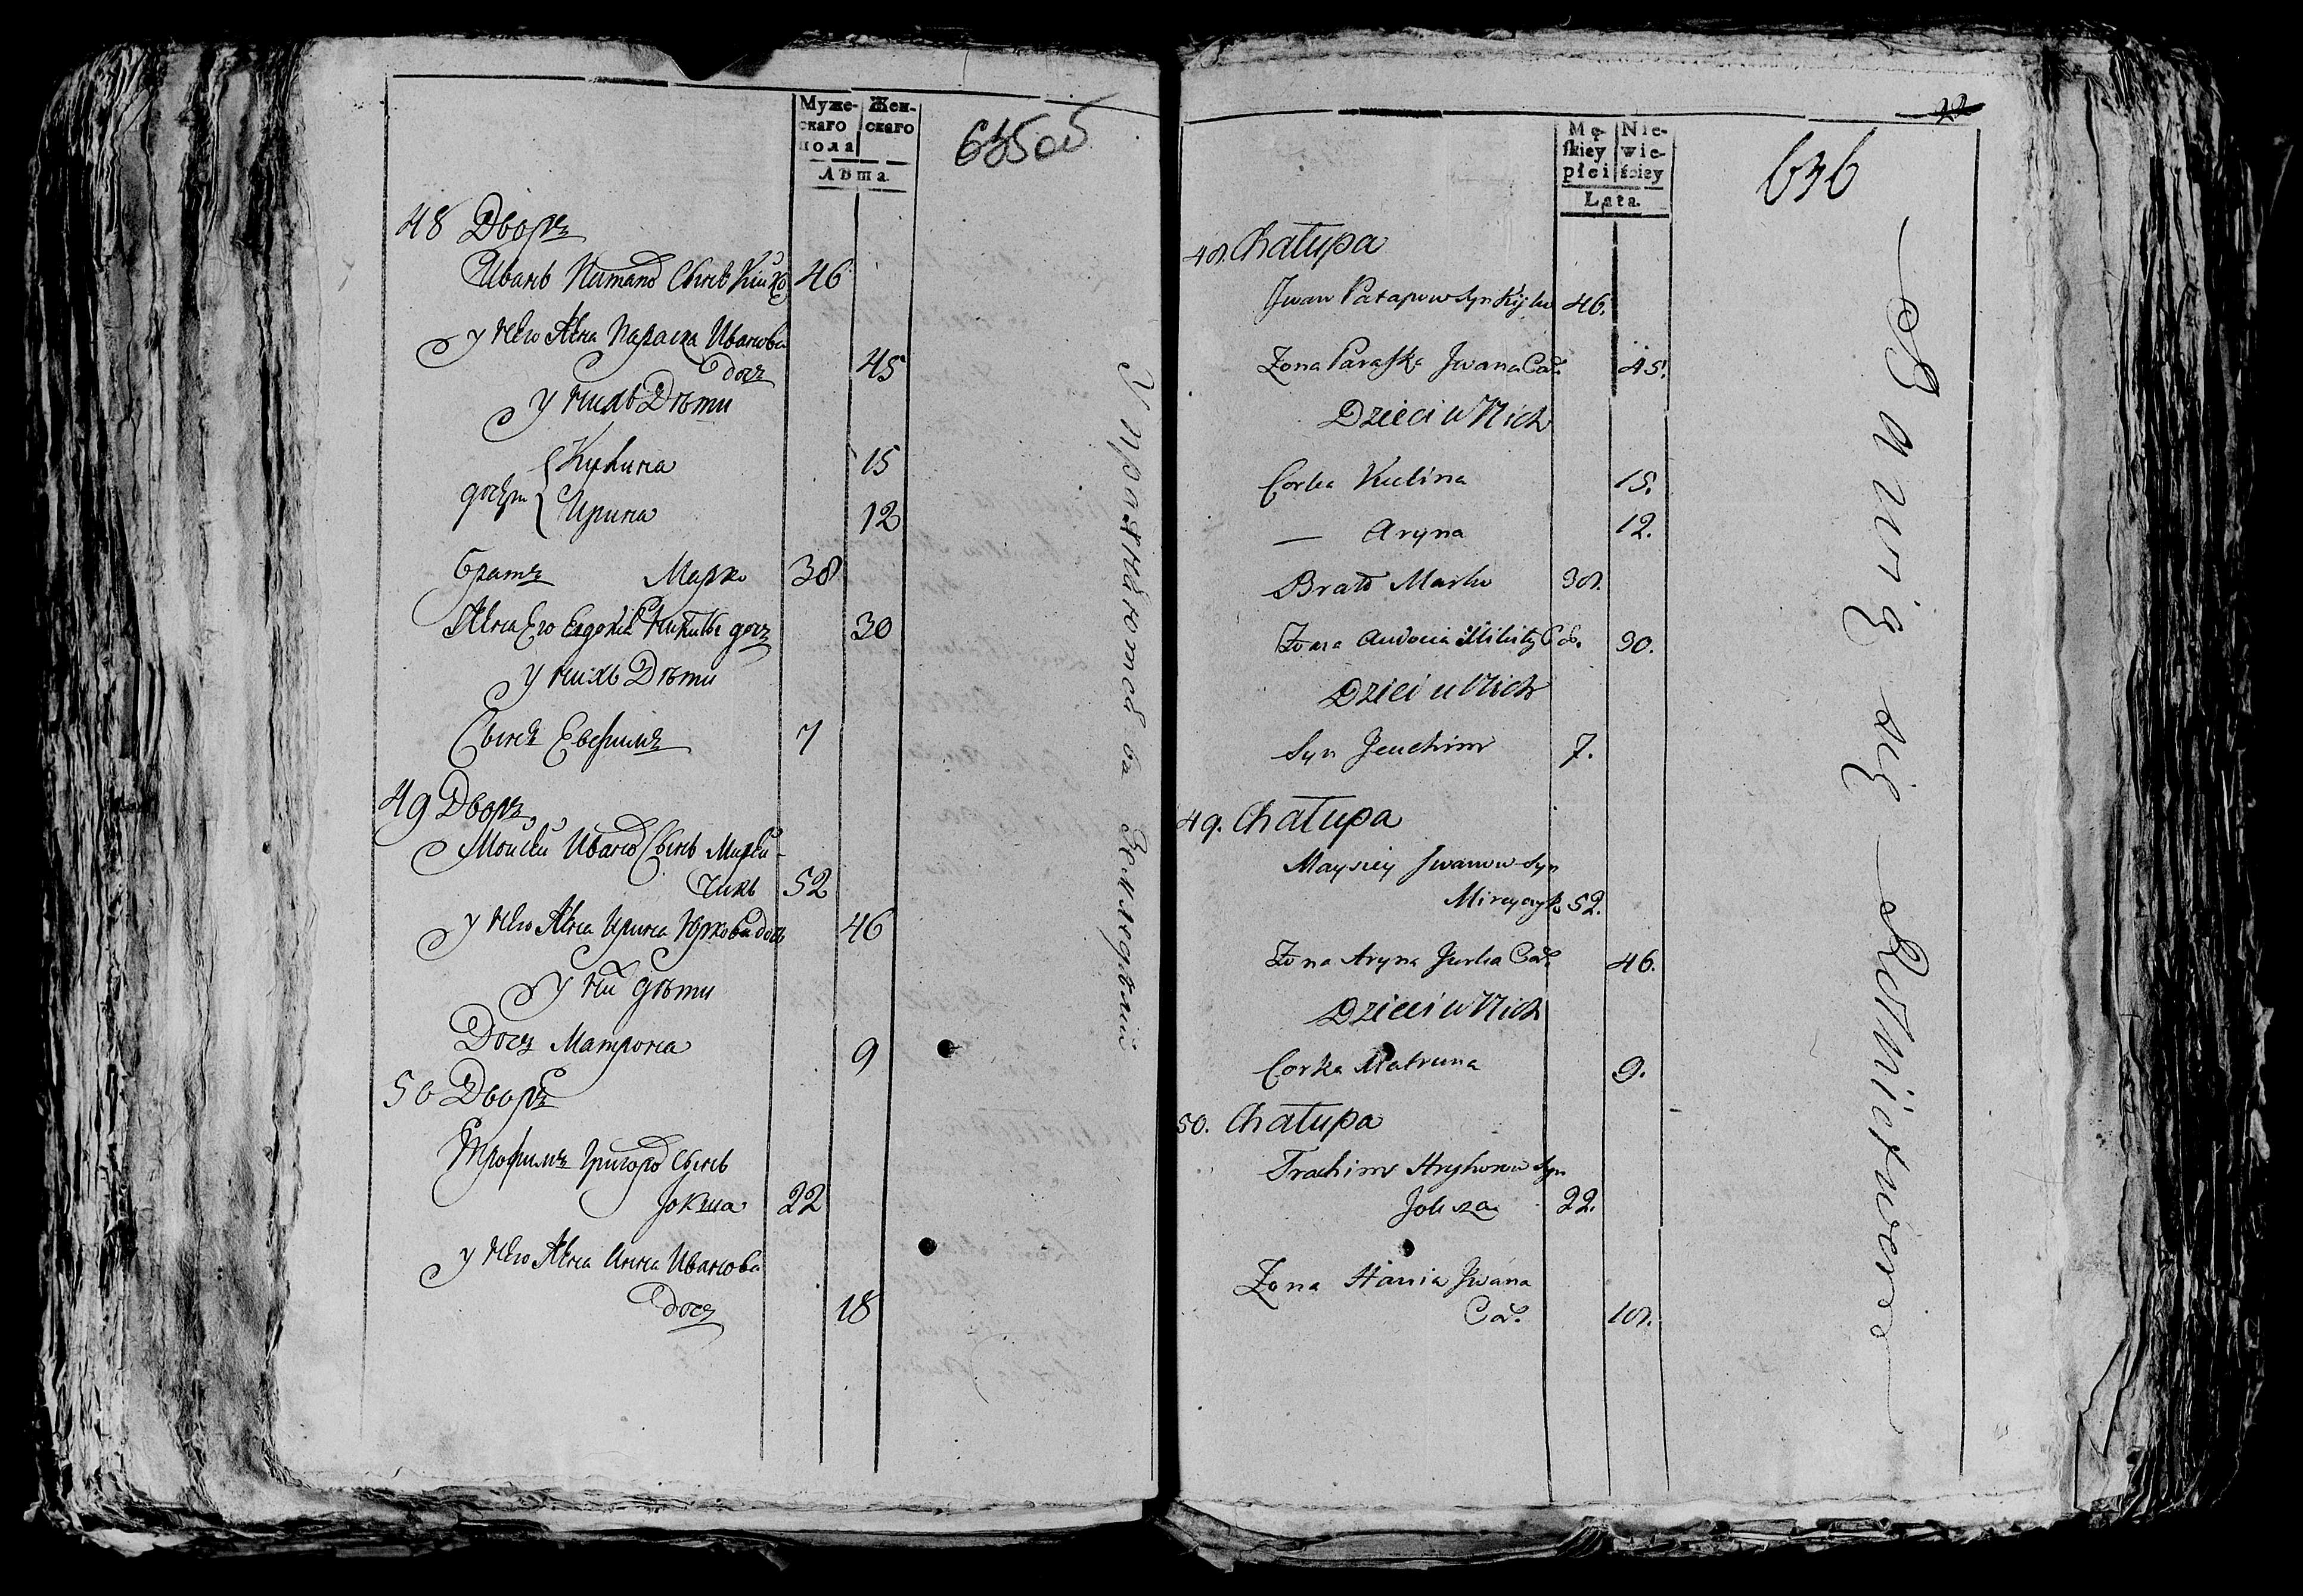 Муже-
скаго
пола
Жен-
скаго
Лѣта
635об
48 Дворъ
Иванъ Патапов Сынъ
46
у него Жена Параска Иванова
дочь
45
у нихъ Дѣти
дочери
Кулина
15
Ирина
12
братъ Марко
38
Жена Его Евдокия Никиты дочь
30
у нихъ Дѣти
Сынъ Евфимъ
7
49 Дворъ
Моисей Иванов Сынъ Мирей-
чикъ
52
у него Жена Ирина Юркова дочь
46
у них дѣти
Дочь Матрона
9
50 Дворъ
Трофимъ Григоров Сынъ
Jокша
22
у него Жена Анна Иванова
дочь
18
Упражняются въ Земледѣлии
22
Mę-
skiey
płci
Nie-
wie-
ściey
Lata.
636
48. Chałupa
Jwan Patapow Syn
46.
Zona Paraska Jwana Cor.
45.
Dzieci u Nich
Corka Kulina
15.
— Aryna
12.
Brat Marko
38.
Zona Audocia Mikity Cor.
30.
Dzieci u Nich
Syn Jeuchim
7.
49. Chałupa
Maysiey Jwanow Syn
Mireyczyk
52.
Zona Aryna Jurka Cor.
46.
Dzieci u Nich
Corka Matruna
9.
50. Chałupa
Trachim Hryhorow Syn
Joksza
22.
Zona Hania Jwana
Cor.
18.
Bawią się Rolnictwem